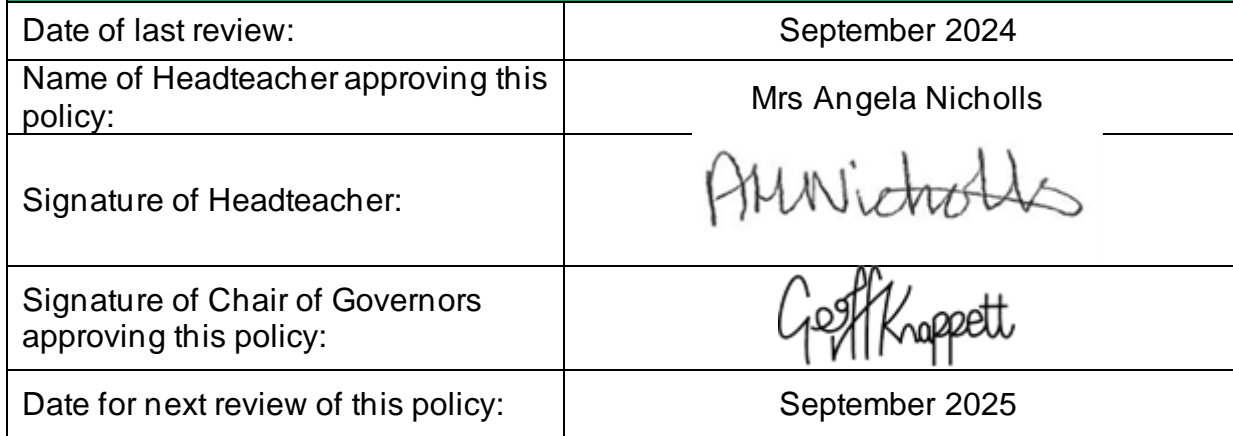 Date of last review:
September 2024
Name of Headteacher approving this
policy:
Mrs Angela Nicholls
Signature of Headteacher:
AMNicholls
Signature of Chair of Governors
approving this policy:
Geoff Knappett
Date for next review of this policy:
September 2025